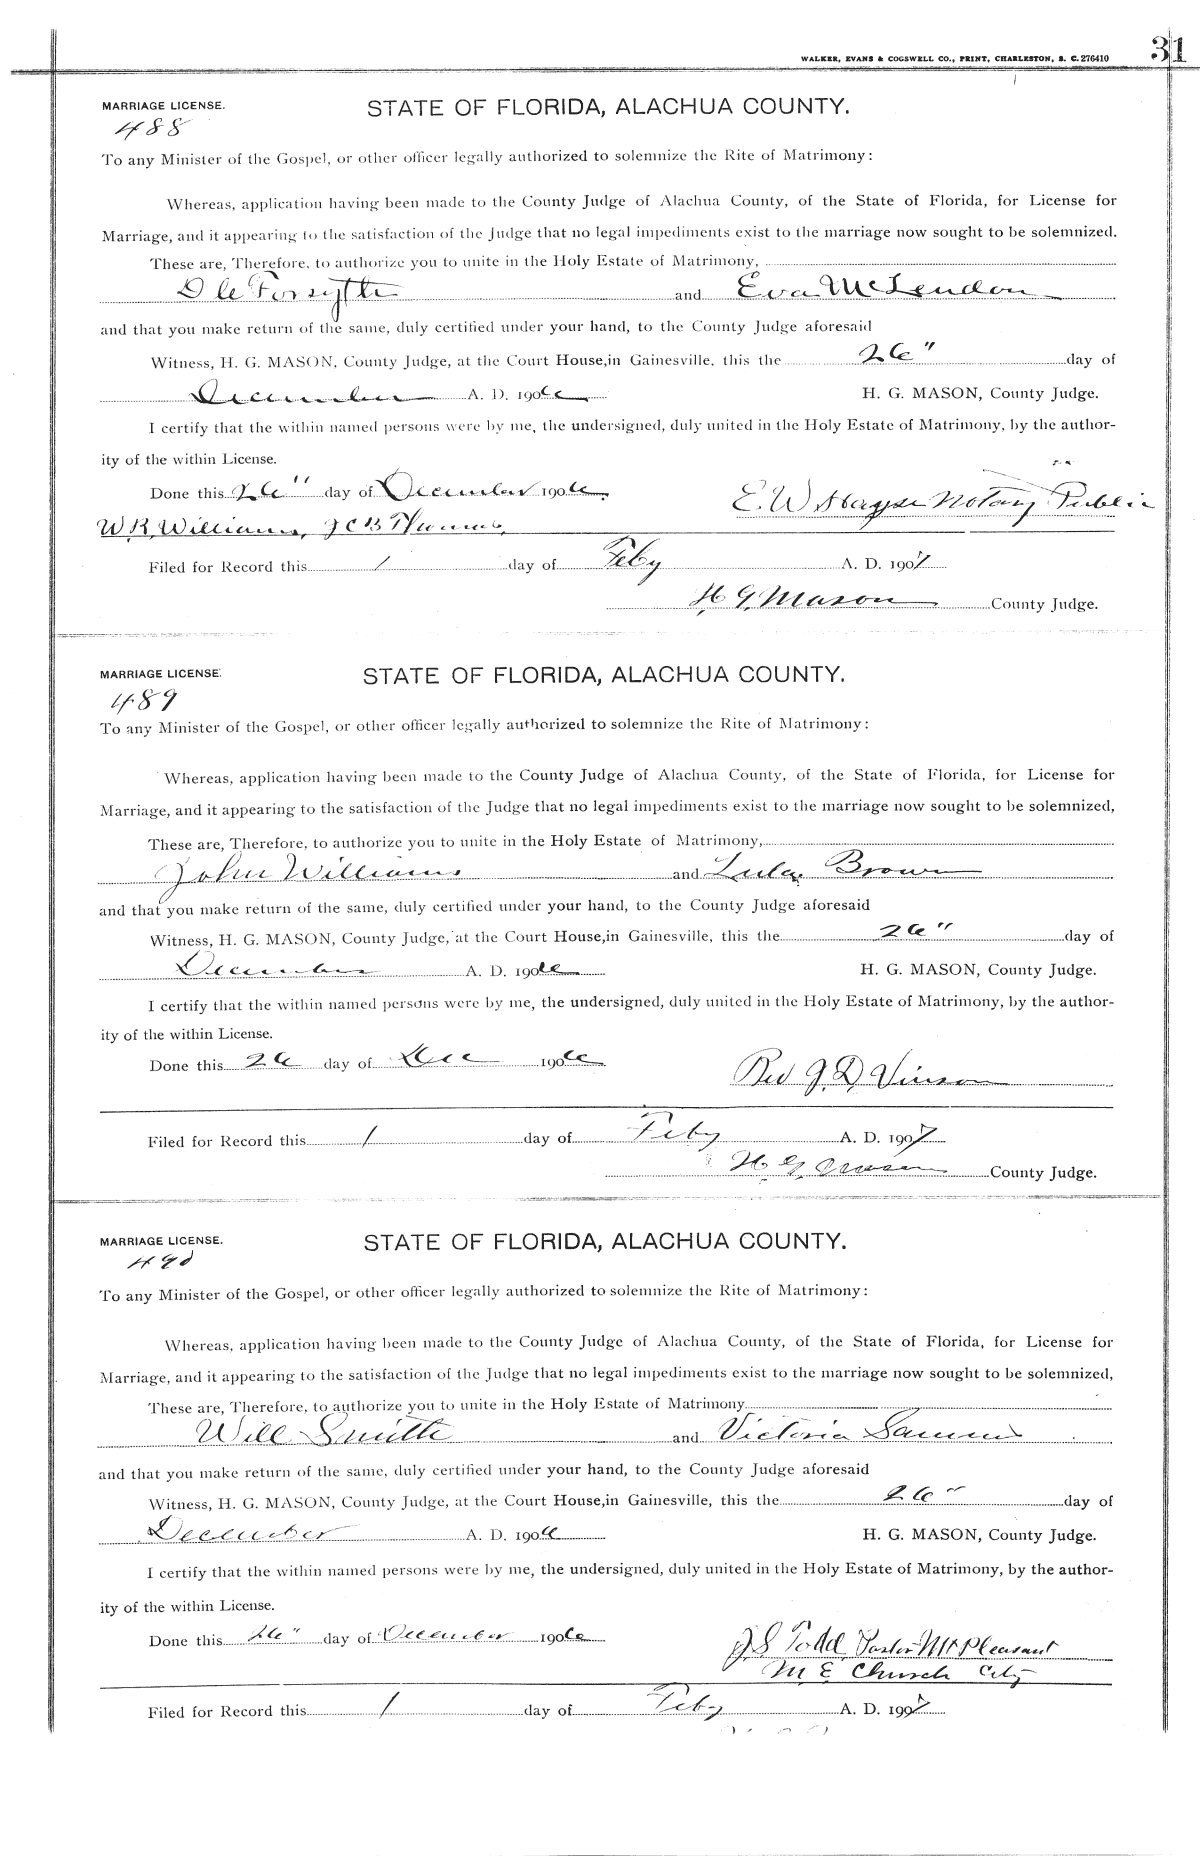 WALKER, EVANS & COGSWELL CO., PRINT, CHARLESTON, S. C. 276410
31
MARRIAGE LICENSE.
STATE OF FLORIDA, ALACHUA COUNTY.
488
To any Minister of the Gospel, or other officer legally authorized to solemnize the Rite of Matrimony:
Whereas, application having been made to the County Judge of Alachua County, of the State of Florida, for License for
Marriage, and it appearing to the satisfaction of the Judge that no legal impediments exist to the marriage now sought to be solemnized.
These are, Therefore, to authorize you to unite in the Holy Estate of Matrimony,
Forsyth and Eva McLendon
and that you make return of the same, duly certified under your hand, to the County Judge aforesaid
Witness, H. G. MASON, County Judge, at the Court House, in Gainesville, this the 26" day of
December A. D. 1906 H. G. MASON, County Judge.
I certify that the within named persons were by me, the undersigned, duly united in the Holy Estate of Matrimony, by the author-
ity of the within License.
Done this 26" day of December 1906. E. W. Notary Public
W. R. Williams, J C B Thomas.
Filed for Record this 1 day of Feby A. D. 1907
H. G. Mason County Judge.
MARRIAGE LICENSE.
STATE OF FLORIDA, ALACHUA COUNTY.
489
To any Minister of the Gospel, or other officer legally authorized to solemnize the Rite of Matrimony:
Whereas, application having been made to the County Judge of Alachua County, of the State of Florida, for License for
Marriage, and it appearing to the satisfaction of the Judge that no legal impediments exist to the marriage now sought to be solemnized,
These are, Therefore, to authorize you to unite in the Holy Estate of Matrimony,
John Williams and Lula Brown
and that you make return of the same, duly certified under your hand, to the County Judge aforesaid
Witness, H. G. MASON, County Judge, at the Court House, in Gainesville, this the 26" day of
December A. D. 1906 H. G. MASON, County Judge.
I certify that the within named persons were by me, the undersigned, duly united in the Holy Estate of Matrimony, by the author-
ity of the within License.
Done this 26 day of Dec 1906 Rev J. D. Vinson
Filed for Record this 1 day of Feby A. D. 1907
H. G. Mason County Judge.
MARRIAGE LICENSE.
STATE OF FLORIDA, ALACHUA COUNTY.
490
To any Minister of the Gospel, or other officer legally authorized to solemnize the Rite of Matrimony:
Whereas, application having been made to the County Judge of Alachua County, of the State of Florida, for License for
Marriage, and it appearing to the satisfaction of the Judge that no legal impediments exist to the marriage now sought to be solemnized,
These are, Therefore, to authorize you to unite in the Holy Estate of Matrimony
Will Smith and Victoria
and that you make return of the same, duly certified under your hand, to the County Judge aforesaid
Witness, H. G. MASON, County Judge, at the Court House, in Gainesville, this the 26" day of
December A. D. 1906 H. G. MASON, County Judge.
I certify that the within named persons were by me, the undersigned, duly united in the Holy Estate of Matrimony, by the author-
ity of the within License.
Done this 26" day of December 1906 J S Todd, Pastor Mt Pleasant
M. E. Church City
Filed for Record this 1 day of Feby A. D. 1907